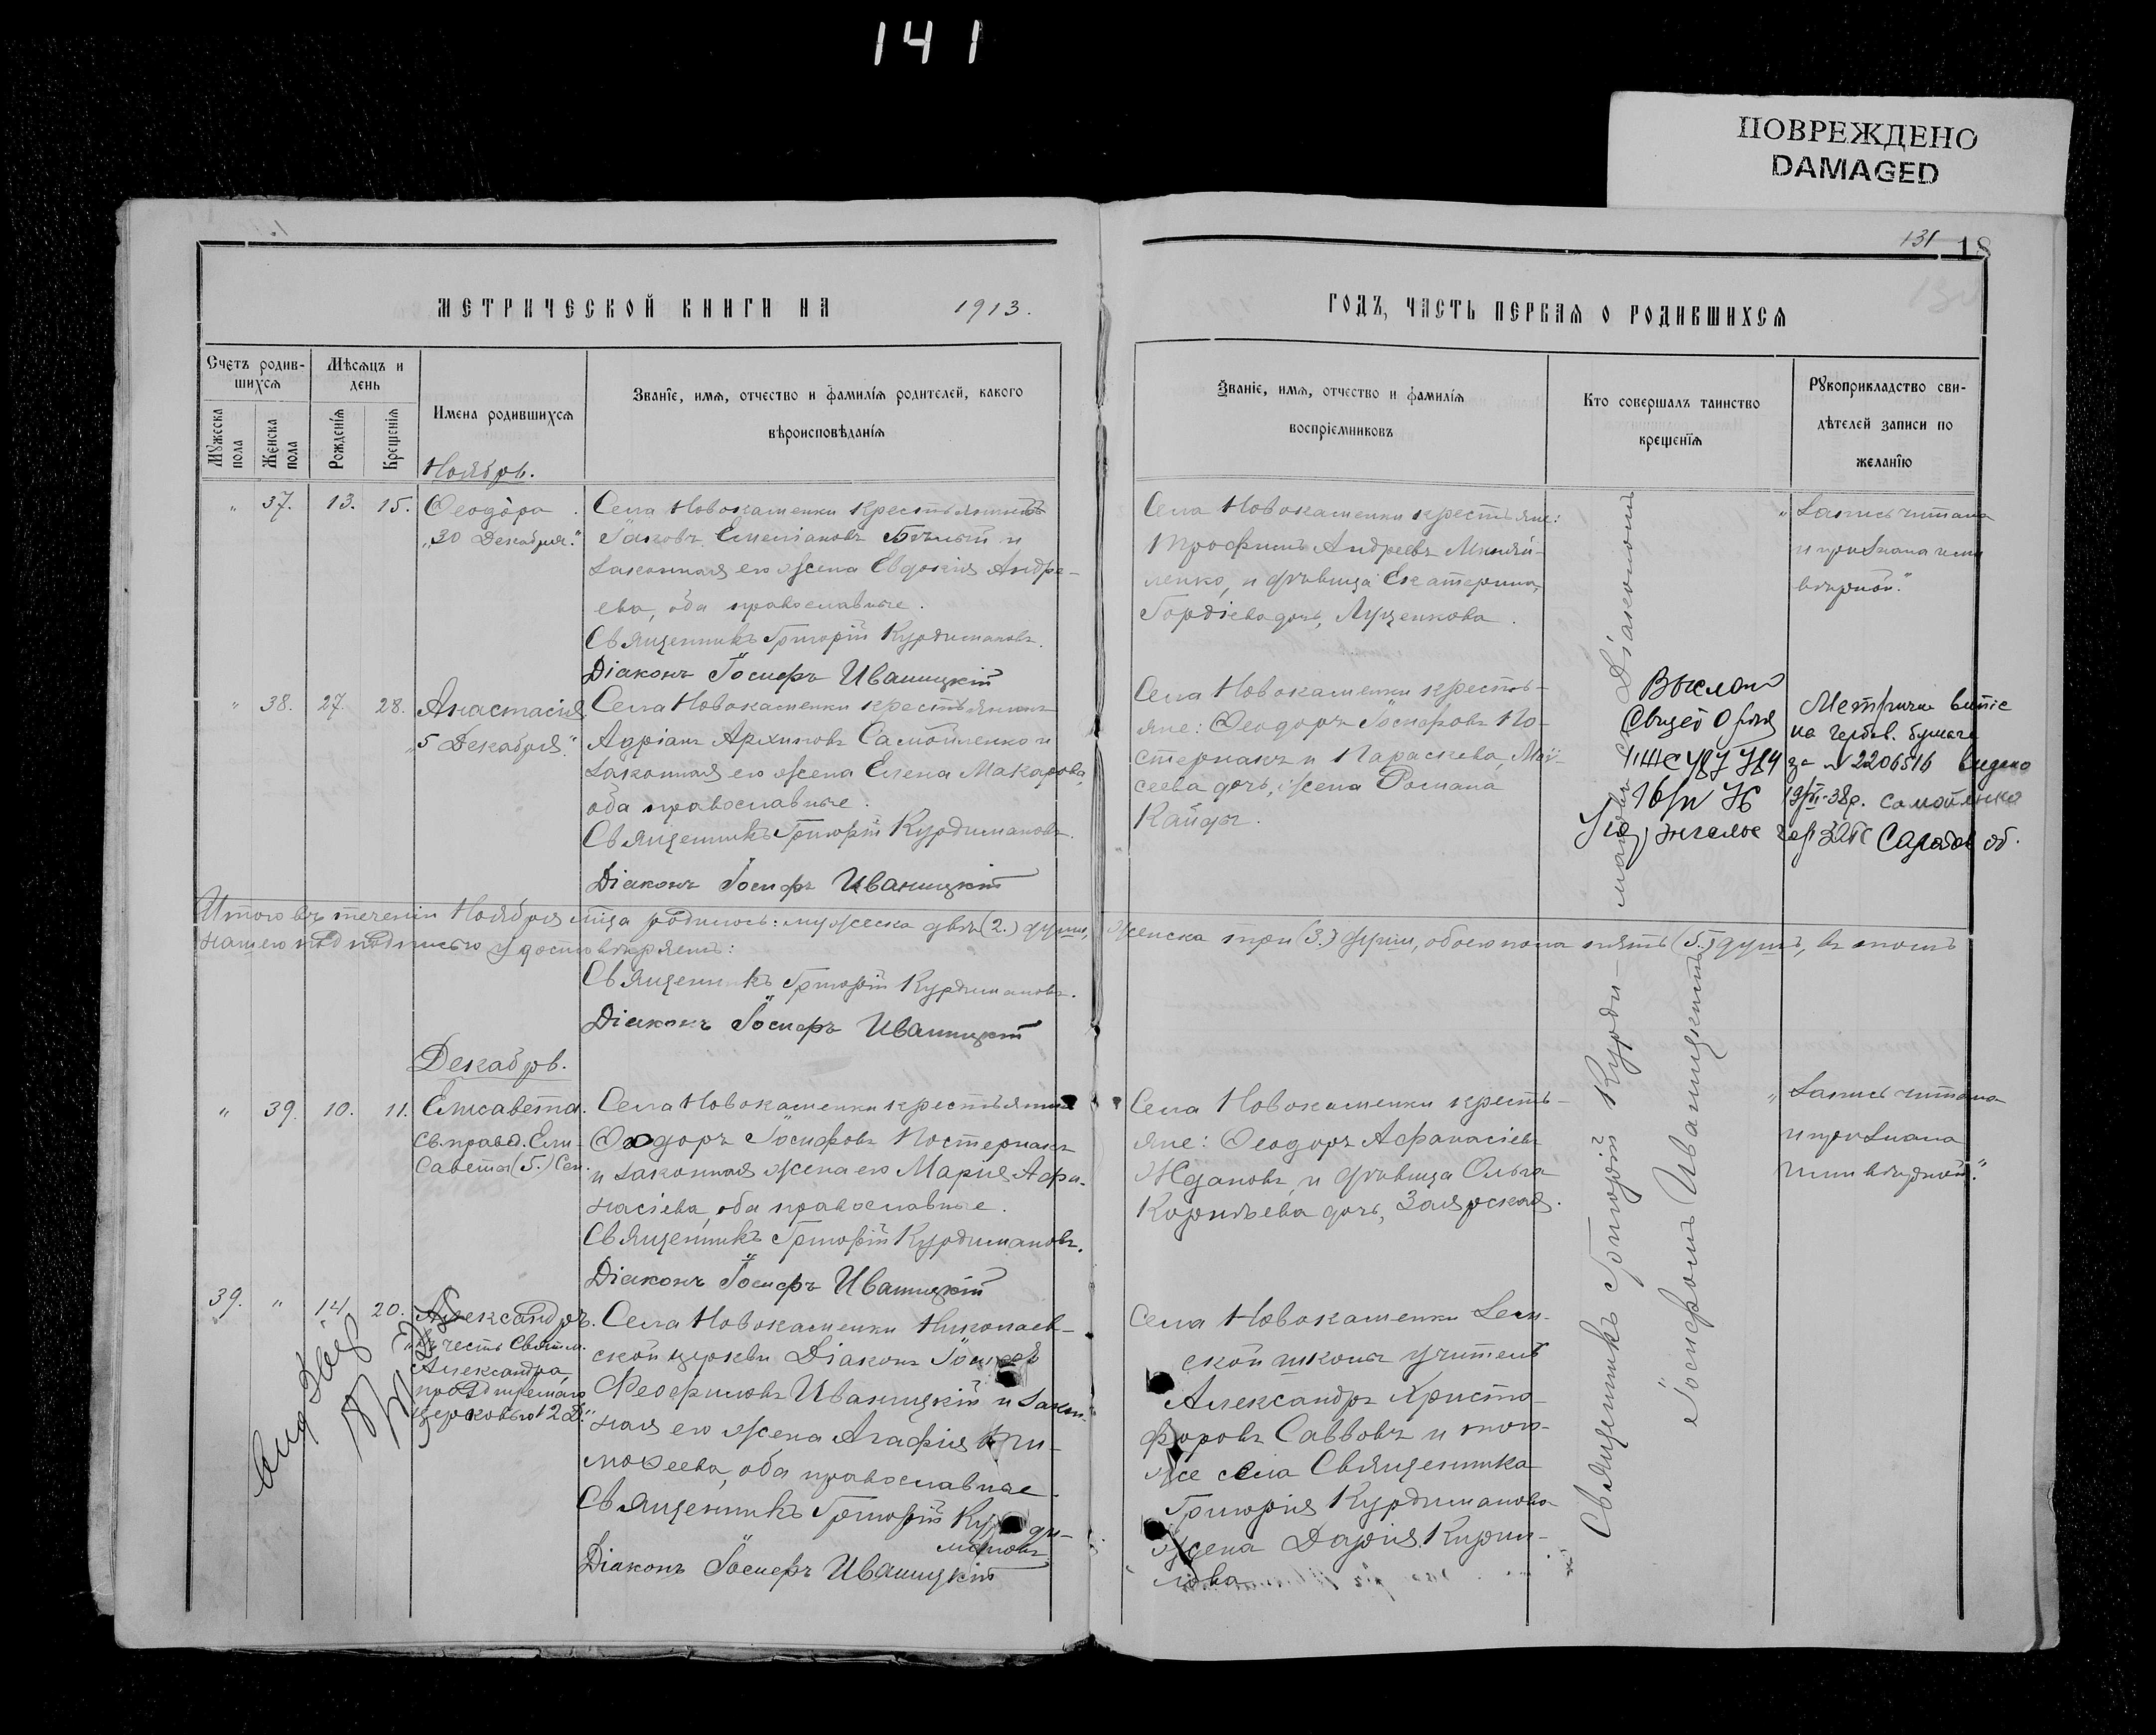 141
ПОВРЕЖДЕНО
DAMAGED
131 18
МЕТРИЧЕСКОЙ КНИГИ НА 1913.
ГОДЪ, ЧАСТЬ ПЕРВАЯ О РОДИВШИХСЯ
Счетъ родив-
шихся
Мужеска пола
Женска пола
Мѣсяцъ и
день
Рожденія
Крещенія
Имена родившихся
Званіе, имя, отчество и фамилія родителей, какого
вѣроисповѣданія
Званіе, имя, отчество и фамилія
воспріемниковъ
Кто совершалъ таинство
крещенія
Рукоприкладство сви-
дѣтелей записи по
желанію
Ноябрь.
" 37. 13. 15.
Ѳеодора
"30 Декабря."
Села Новокаменки крестьянинъ
Іаковъ Емеліановъ Бѣлый и
законная его жена Евдокія Андре-
ева, оба православные.
Священникъ Григорій Курдимановъ.
Діаконъ Іосифъ Иваницкій
Села Новокаменки крестьяне:
Трофимъ Андреевъ
ленко, и дѣвица Екатерина,
Гордіева дочь, Луценкова.
"Запись читана
и признана нами
вѣрной."
" 38. 27. 28.
Анастасія
"5 Декабря."
Села Новокаменки крестьянинъ
Адріанъ Архиповъ Самойленко и
законная его жена Елена Макарова,
оба православные.
Священникъ Григорій Курдимановъ.
Діаконъ Іосифъ Иваницкій
Села Новокаменки кресть-
яне: Ѳеодоръ Іосифовъ По-
стернакъ и Параскева, Мои-
сеева дочь, жена Романа
Кайды.
на гербов. бумаге
за № 2206516
38р. Самойленко
Итого въ теченіи Ноября мѣсца родилось: мужеска двѣ (2.) души, женска три (3.) души, обоего пола пять (5.) душъ, въ томъ
нашею подподписью удостовѣряемъ:
Священникъ Григорій Курдимановъ.
Діаконъ Іосифъ Иваницкій
Декабрь.
" 39. 10. 11.
Елисавета.
Св. прав. Ели-
савета (5.) Сен.
Села Новокаменки крестьянинъ
Ѳеодоръ Іосифовъ Постернакъ
и законная жена его Марія Афа-
насіева, оба православные.
Священникъ Григорій Курдимановъ.
Діаконъ Іосифъ Иваницкій
Села Новокаменки кресть-
яне: Ѳеодоръ Афанасіевъ
Ждановъ, и дѣвица Ольга
Корнѣева дочь, Заярская.
"Запись читана
и признана
нами вѣрной."
39. " 14. 20.
Александръ.
"въ честь Святит.
Александра,
празднуемаго
церковью 12 Д."
Села Новокаменки Николаев-
ской церкви Діаконъ Іосифъ
Ѳеофиловъ Иваницкій и закон-
ная его жена Агафія Ти-
моѳеева, оба православные.
Священникъ Григорій Курди-
мановъ
Діаконъ Іосифъ Иваницкій
Села Новокаменки Зем-
ской школы учитель
Александръ Христо-
форовъ Саввовъ и того-
же села Священника
Григорія Курдиманова
жена Дарія Кирил-
лова
Священникъ Григорій Курди-
мановъ съ Діакономъ
Іосифомъ Иваницкимъ